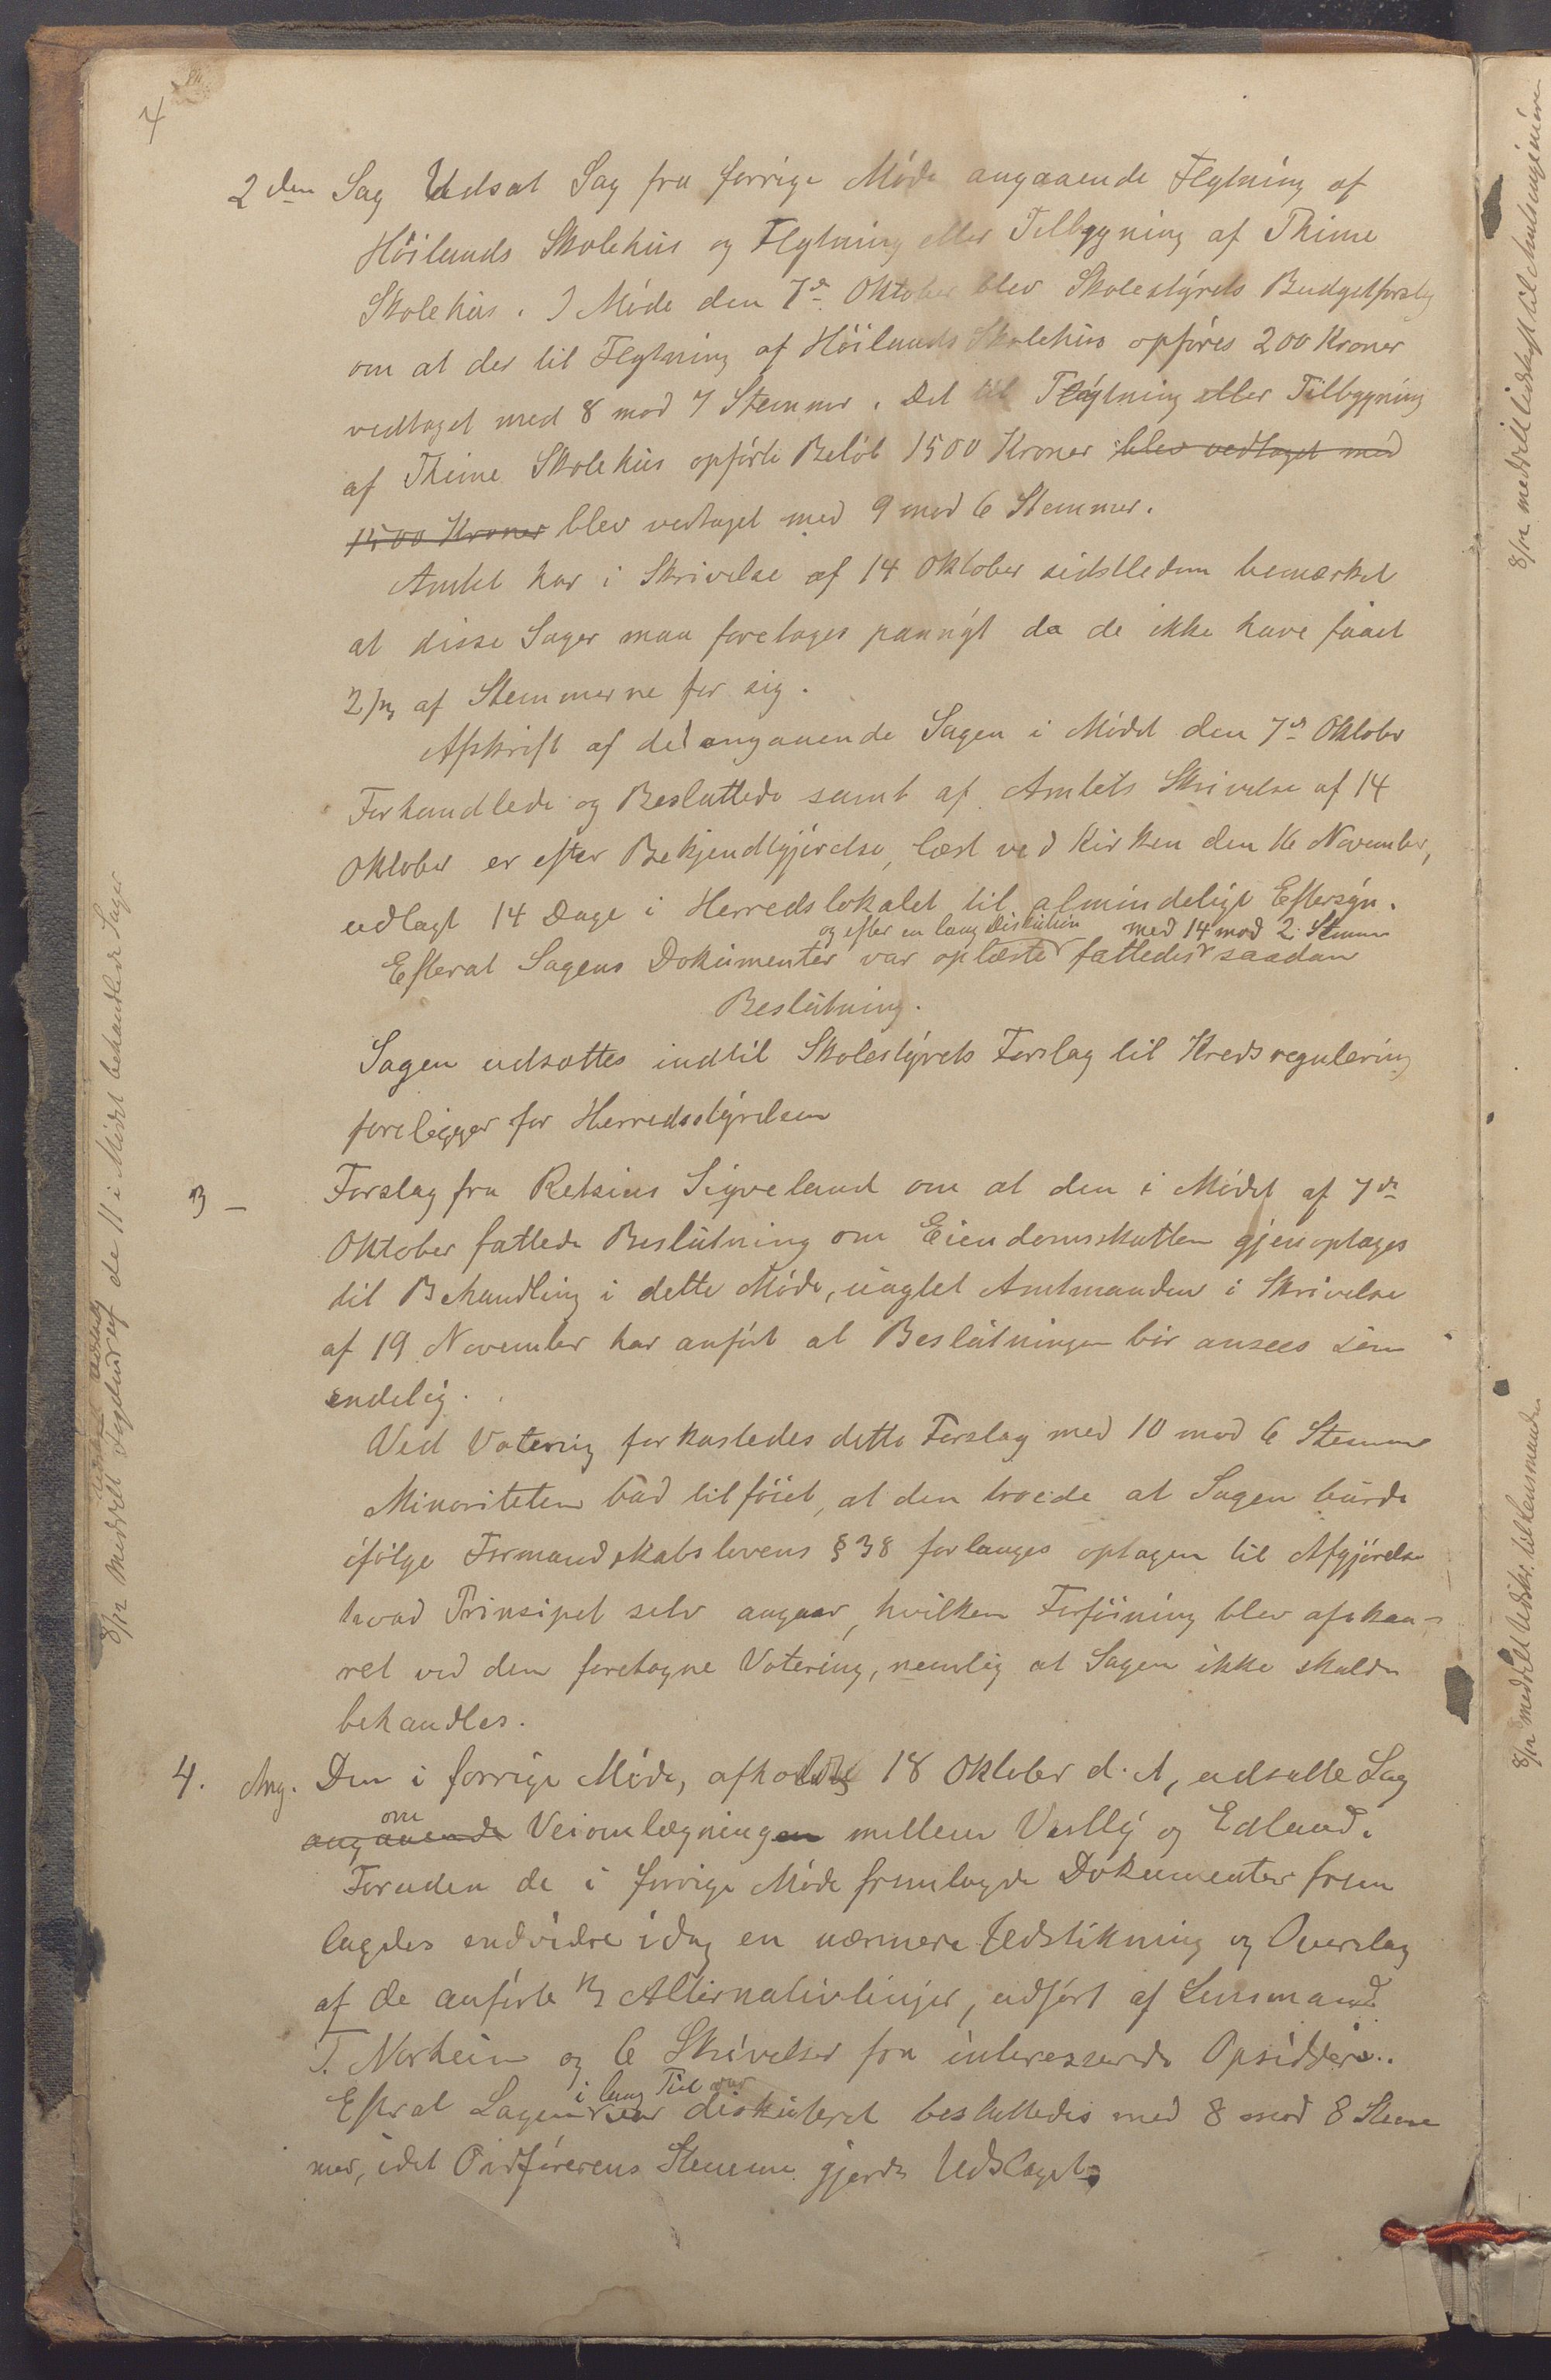 4
2den Sag Udsat Sag fra forrige Möde angaaende Flytning af
Höilands Skolehus og Flytning eller Tilbygning af Thime
Skolehus. I Möde den 7de Oktober blev Skolestyrets Budgetforslag
om at der til Flytning af Höilands Skolehus opföres 200 Kroner
vedtaget med 8 mod 7 Stemmer. Det til Flytning eller Tilbygning
af Thime Skolehus opförte Belöb 1500 Kroner blev vedtaget med
1500 Kroner blev vedtaget med 9 mod 6 Stemmer.
Amtet har i Skrivelse af 14 Oktober sidstleden bemærket
at disse Sager maa foretages paanyt da de ikke have faaet
2/3 af Stemmerne for sig.
Afskrift af det angaaende Sagen i Mödet den 7de Oktober
Forhandlede og Besluttede samt af Amtets Skrivelse af 14
Oktober er efter Bekjendtgjörelse, læst ved Kirken den 16 November,
udlagt 14 Dage i Herredslokalet til almindeligt Eftersyn.
og efter en lang Diskution med 14 mod 2 Stemmer
Efterat Sagens Dokumenter var oplæste fattedes saadan
Beslutning.
Sagen udsættes indtil Skolestyrets Forslag til Kredsregulering
foreligger for Herredsstyrelsen
3 - Forslag fra Retsius Sigveland om at den i Mödet af 7de
Oktober fattede Beslutning om Eiendomsskatten gjenoptages
til Behandling i dette Möde, uagtet Amtmanden i Skrivelse
af 19 November har anfört at Beslutningen bör ansees som
endelig.
Ved Votering forkastedes dette Forslag med 10 mod 6 Stemmer
Minoriteten bad tilföiet, at den troede at Sagen burde
ifölge Formandskabslovens § 38 forlanges optagen til Afgjörelse
hvad Prinsipet selv angaar, hvilken Forföining blev afskaa-
ret ved den foretagne Votering, nemlig at Sagen ikke skulde
behandles.
4. Ang. Den i forrige Möde, afholdt 18 Oktober d. A, udsatte Sag
om
angaaende Veiomlægningen mellem Vestly og Edland.
Foruden de i forrige Möde fremlagde Dokumenter frem
lagdes endvidre idag en nærmere Udstikning og Overslag
af de anförte 3 Alternativlinjer, udfört af Lensmand
T. Norheim og 6 Skrivelser fra interesserede Opsiddere.
i lang Tid var
Efterat Sagen var diskuteret besluttedes med 8 mod 8 Stem
mer, idet Ordförerens Stemme gjorde Udslaget,
8/12 meddelt Fogden af de 11 i Mödet behandlede Sager
8/12 meddelt Udskrift til Amtsingeniören
8/12 meddelt Udskr. til Lensmanden